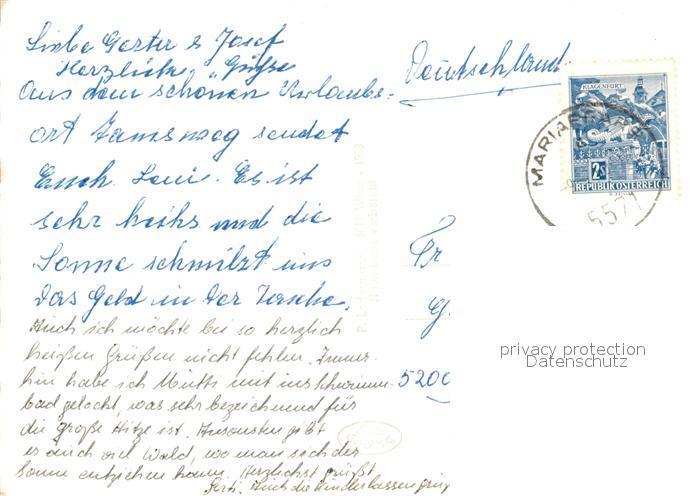 Liebe Gerter & Josef
Herzliche Grüße
Aus dem schönen Urlaubs-
ort Tamsweg sendet
Euch Loni. Es ist
sehr heihs und die
Sonne schmilzt uns
das Geld in der Tasche.
Auch ich möchte bei so herzlich
heißen Grüßen nicht fehlen. Immer-
hin habe ich Mutti mit ins Schwimm-
bad gelockt, was sehr bezeichnend für
die große Hitze ist. Ansonsten gibt
es auch viel Wald, wo man sich der
Sonne entziehen kann. Herzlichst grüßt
Gerti. Auch die Kinder lassen grüß
Deutschland
KLAGENFURT
2S
REPUBLIK ÖSTERREICH
MARIAPFARR
5571
Fr
G
5200
privacy protection
Datenschutz